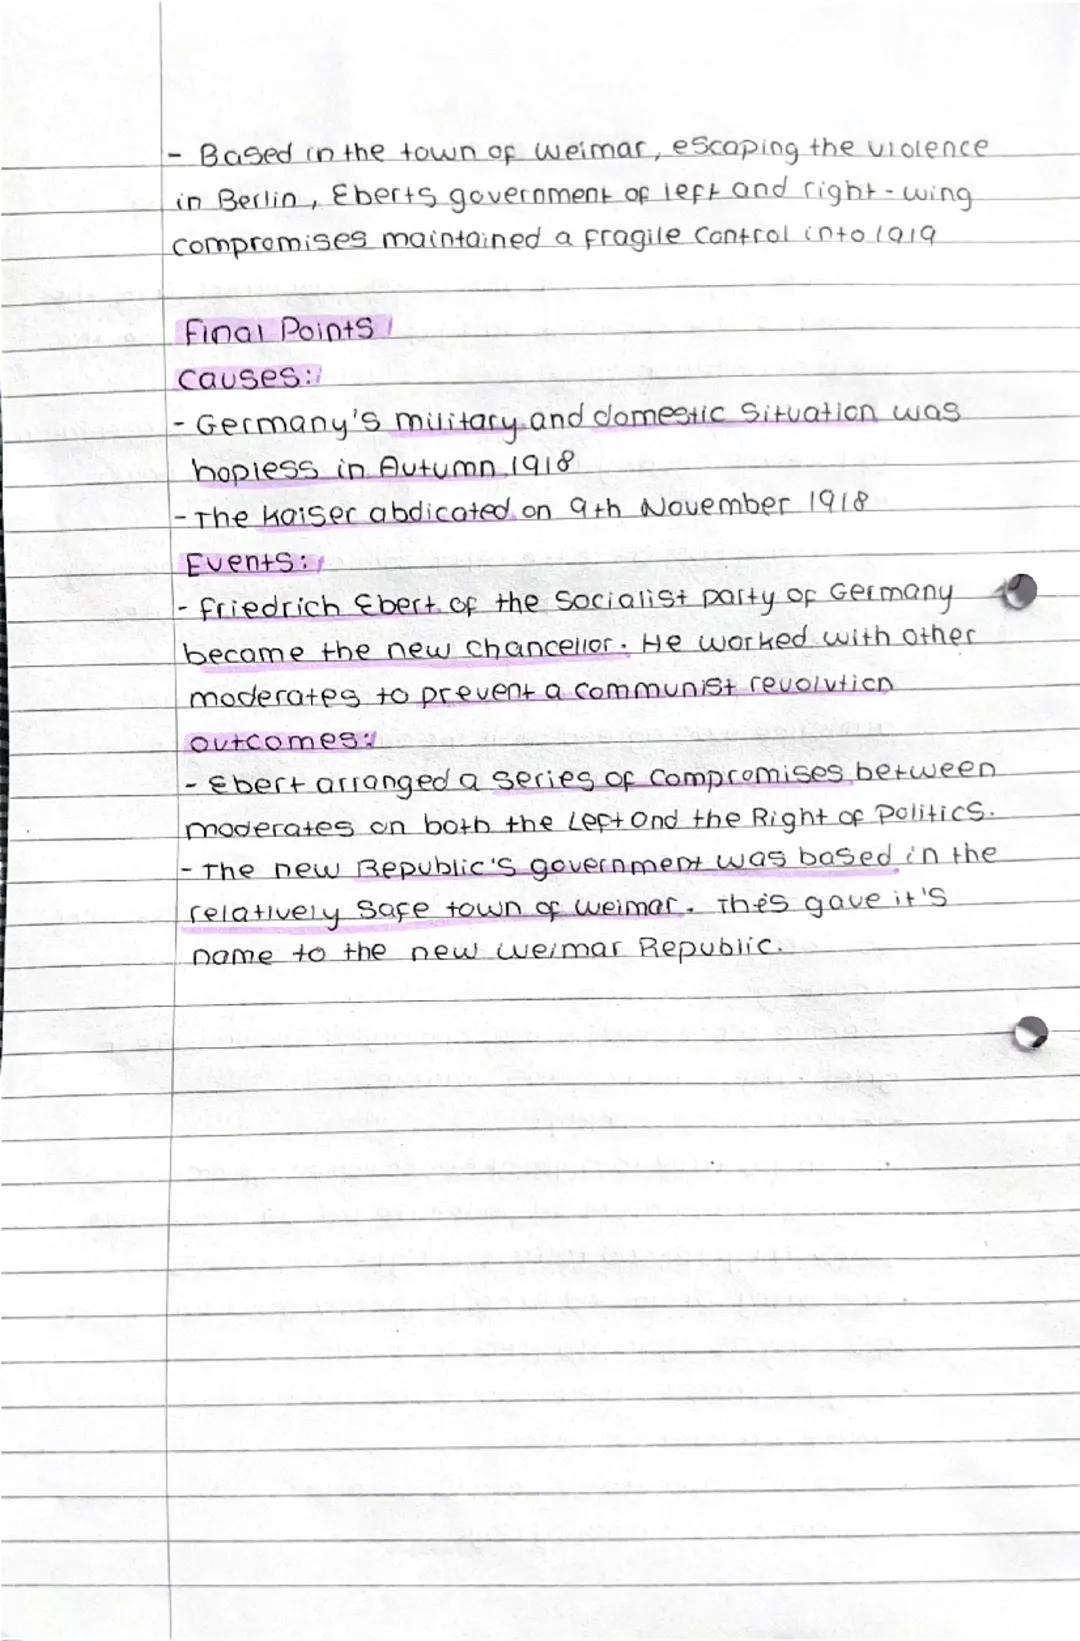 - Based in the town of Weimar, escaping the violence
in Berlin, Eberts government of left and right-wing
compromises maintained a fragile control into 1919
Final Points
Causes:
- Germany's military and domestic situation was
hopless in Autumn 1918
- The Kaiser abdicated on 9th November 1918
Events:
- Friedrich Ebert of the Socialist party of Germany
became the new chancellor. He worked with other
moderates to prevent a communist revolution
outcomes:
- Ebert arranged a series of compromises between
moderates on both the Left and the Right of Politics.
- The new Republic's government was based in the
relatively safe town of Weimar. This gave it's
name to the new Weimar Republic.